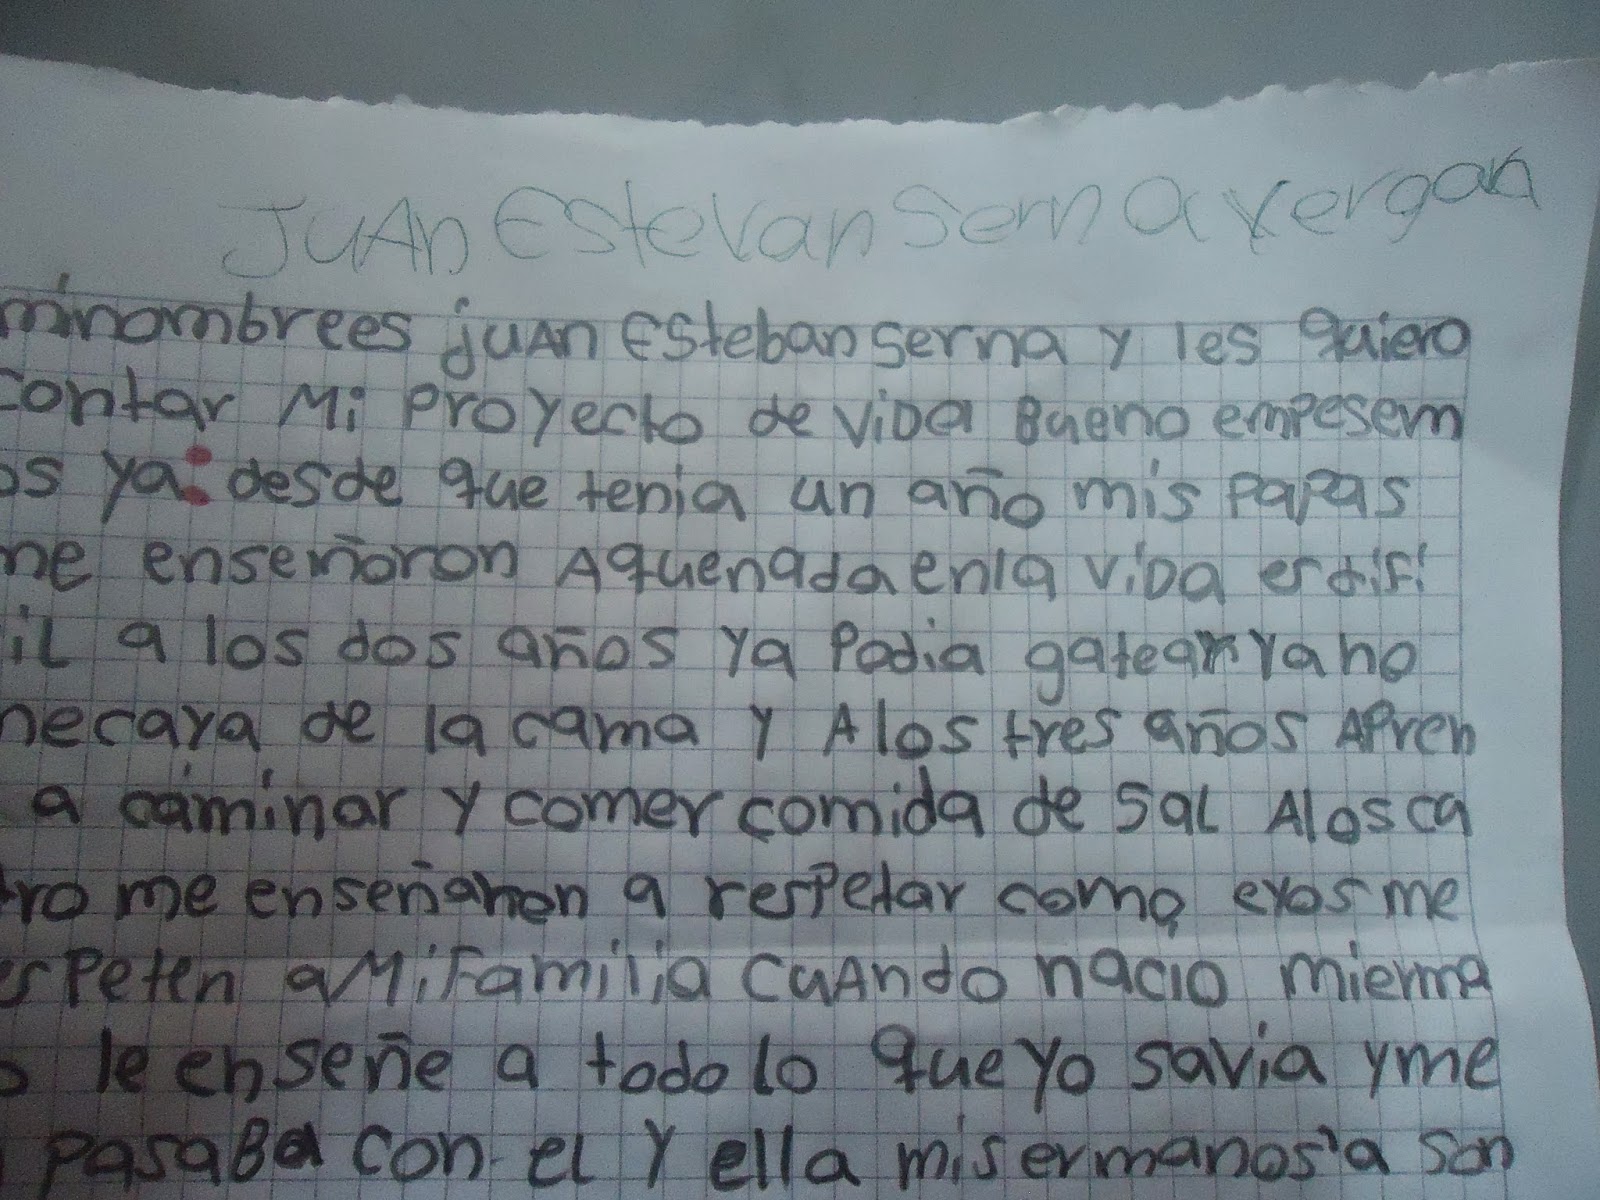 JuAn Estevan Serna Vergan
minombrees juAn Estebanserna y les quiero
contar Mi proyecto de viDa Bueno empesem
os ya: desde que tenia un año mis papas
me enseñoron Aquenadaenla viDa es difi
il a los dos años ya podia gatear ya no
mecaya de la cama y Alos tres años Apren
a caminar y comer comida de sal Alosca
tro me enseñaron a respetar como eyos me
espeten aMifamilia CuAndo nacio mierma
o le enseñe a todo lo que yo savia yme
pasaBa con el y ella misermanos a son